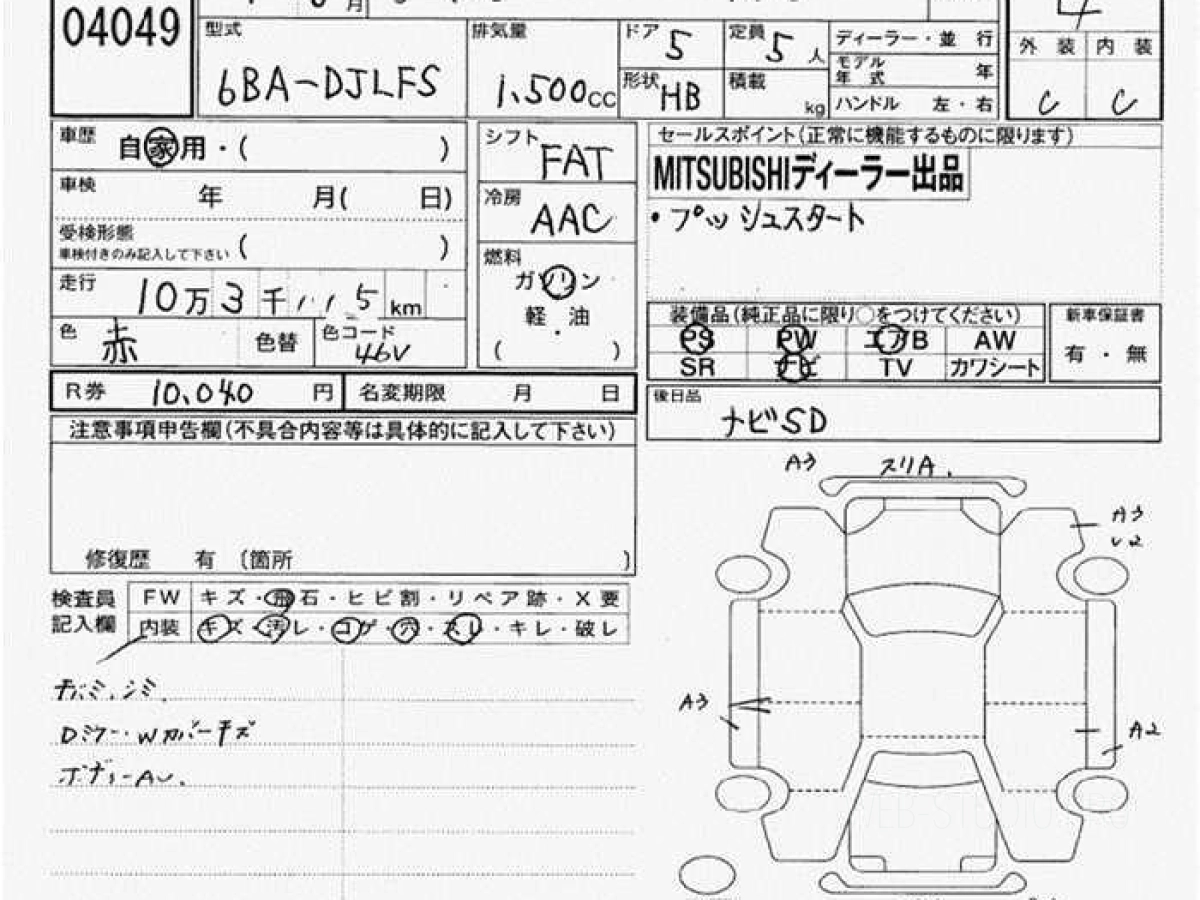 04049
月
4
型式
6BA-DJLFS
排気量
1,500cc
ドア 5
定員 5人
形状 HB
積載 kg
ディーラー・並行
モデル年式 年
ハンドル 左・右
外装 内装
C C
車歴 自家用・( )
車検 年 月( 日)
受検形態
車検付きのみ記入して下さい ( )
走行 10万3千,,,5km
色 赤 色替 色コード 46V
シフト FAT
冷房 AAC
燃料
ガソリン
軽・油
( )
セールスポイント(正常に機能するものに限ります)
MITSUBISHIディーラー出品
・プッシュスタート
装備品(純正品に限り○をつけてください)
PS PW エアB AW
SR ナビ TV カワシート
新車保証書
有・無
R券 10,040円 名変期限 月 日
後日品
ナビSD
注意事項申告欄(不具合内容等は具体的に記入して下さい)
修復歴 有 (箇所 )
検査員記入欄
FW キズ・飛石・ヒビ割・リペア跡・X要
内装 キズ・汚レ・コゲ・穴・スレ・キレ・破レ
Dミラー・Wカバーキズ
ボディーAU.
A3 スリA.
A3
U2
A3
A2
WEB-STUDIO